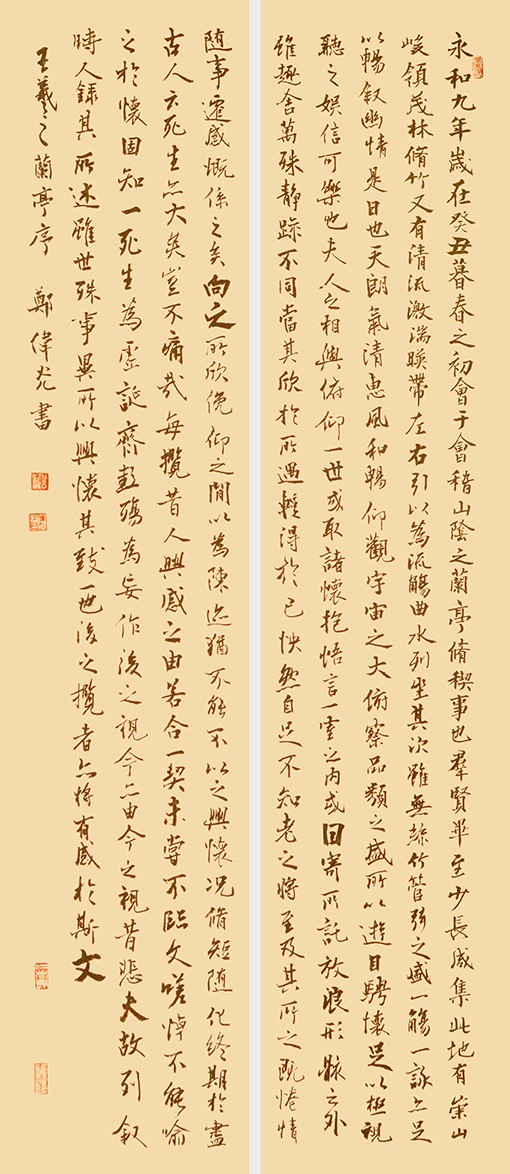 永和九年歲在癸丑暮春之初會于會稽山陰之蘭亭脩稧事也羣賢畢至少長咸集此地有崇山
峻領茂林脩竹又有清流激湍暎帶左右引以為流觴曲水列坐其次雖無絲竹管弦之盛一觴一詠亦足
以暢叙幽情是日也天朗氣清惠風和暢仰觀宇宙之大俯察品類之盛所以遊目騁懷足以極視
聽之娛信可樂也夫人之相與俯仰一世或取諸懷抱悟言一室之內或因寄所託放浪形骸之外
雖趣舍萬殊靜躁不同當其欣於所遇輒得於己怏然自足不知老之將至及其所之既惓情
随事遷感慨係之矣向之所欣俛仰之間以為陳迹猶不能不以之興懷况脩短随化終期於盡
古人云死生亦大矣豈不痛哉每攬昔人興感之由若合一契未嘗不臨文嗟悼不能喻
之於懷固知一死生為虛誕齊彭殤為妄作後之視今亦由今之視昔悲夫故列叙
時人録其所述雖世殊事異所以興懷其致一也後之攬者亦將有感於斯文
王羲之蘭亭序 鄭偉書